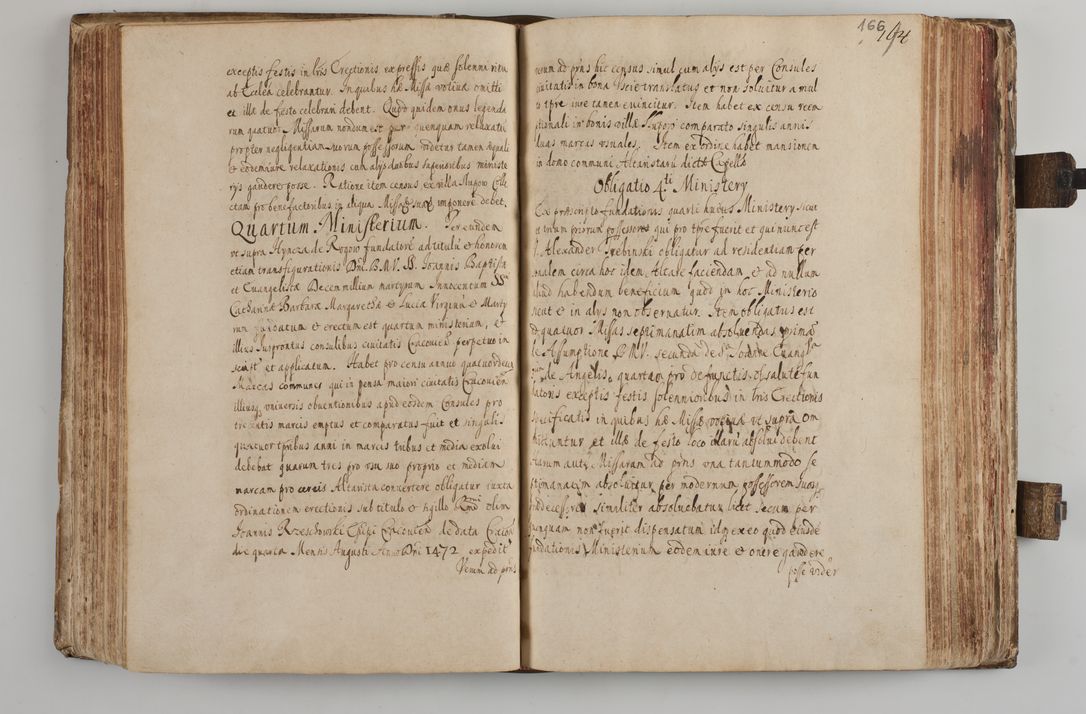 exceptis festis in lris Erectionis expressis quæ solenni ritu
ab Ecclea celebrantur. In quibus hæ Missæ votivæ omitti
et illæ de festo celebrari debent. Quod quidem onus legenda
rum quatuor Missarum nondum est per quenquam relaxatũ
propter negligentiam suorum possessorum videtur tamen æquali
& eodem iure relaxationis cum alys duobus superioribus ministe
rys gaudere posse. Ratione item census ex villa Stupow Colle
ctam pro benefactoribus in aliqua Missæ suæ imponere debet.
Quartum Ministerium. Per eundem
ut supra Hyncza de Rogow fundatorẽ ad titulũ & honorem
etiam transfigurationis Dni B.M.V. SS. Joannis Baptistæ
et Euangelistæ Decem millium martyrum Innocentum SS
Catharinæ Barbaræ Margarethæ & Lucia Virginũ & Marty
rum fundatum & erectum est quartum ministerium, &
illius Juspronatus consulibus civitatis Cracovieñ perpetuo in
et applicatum. Habet pro censu annuo quatuordecim
Marcas communes qui in pensa maiori civitatis Cracovieñ
illiusq universis obventionibus apud eosdem Consules pro
trecentis marcis emptus et comparatus fuit et singulis
quatuor tpribus anni in marcis tribus et media exolui
debebat quarum tres pro usu suo proprio et mediam
marcam pro cereis Altarista convertere obligatur iuxta
ordinationem erectionis sub titulo & sigillo olim
Joannis Rzeschowski Cracovieñ de data Cracov
die quarta Mensis Augusti Anno Dni 1472 expedit
Verum ad prns
166
194
verum ad prns hic census simul cum alys est per Consules
civitatis in bona translatus et non soluitur a mul
to tpre iure tamen evincitur. Item habet ex censu reem
ptionali in bonis villæ Stupow comparato singulis annis
duas marcas usuales. Item ex ordine habet mansionem
in domo communi Altaristarũ dicta
Obligatio 4ti Ministery
Ex præscripto fundationis quarti huius Ministery sicut
et trium priorum possessores qui pro tpre fuerit et qui nunc est
Alexander Trebinski obligatur ad residentiam per
sonalem circa hoc idem Altare faciendam & ad nullum
aliud habendum beneficium quod in hoc Ministerio
sicut & in alys non observatur. Item obligatus est
ad quatuor Missas septimanatim absoluendas primã
de Assumptione B.M.V. secundã de Sto Joanne Euang
de Angelis, quartam pro defunctis, salute fun
datoris exceptis festis solennioribus in lris Erectionis
specificatis in quibus hæ Missæ votivæ ut supra om
mittuntur et illæ de festo loco illarũ absolui debent
Quarum autẽ Missarum ad prns una tantummodo se
ptimanatim absoluitur per modernum possessorem
prædecessores similiter absoluebatur licet secum per
quenquam non fuerit dispensatum idq ex eo quod eiusdẽ
fundationis Ministerium eodem iure & onere gaudere
posse videt